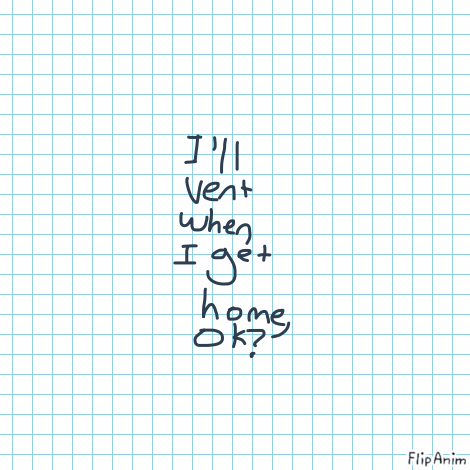 I'll
vent
when
I get
home,
Ok?
FlipAnim